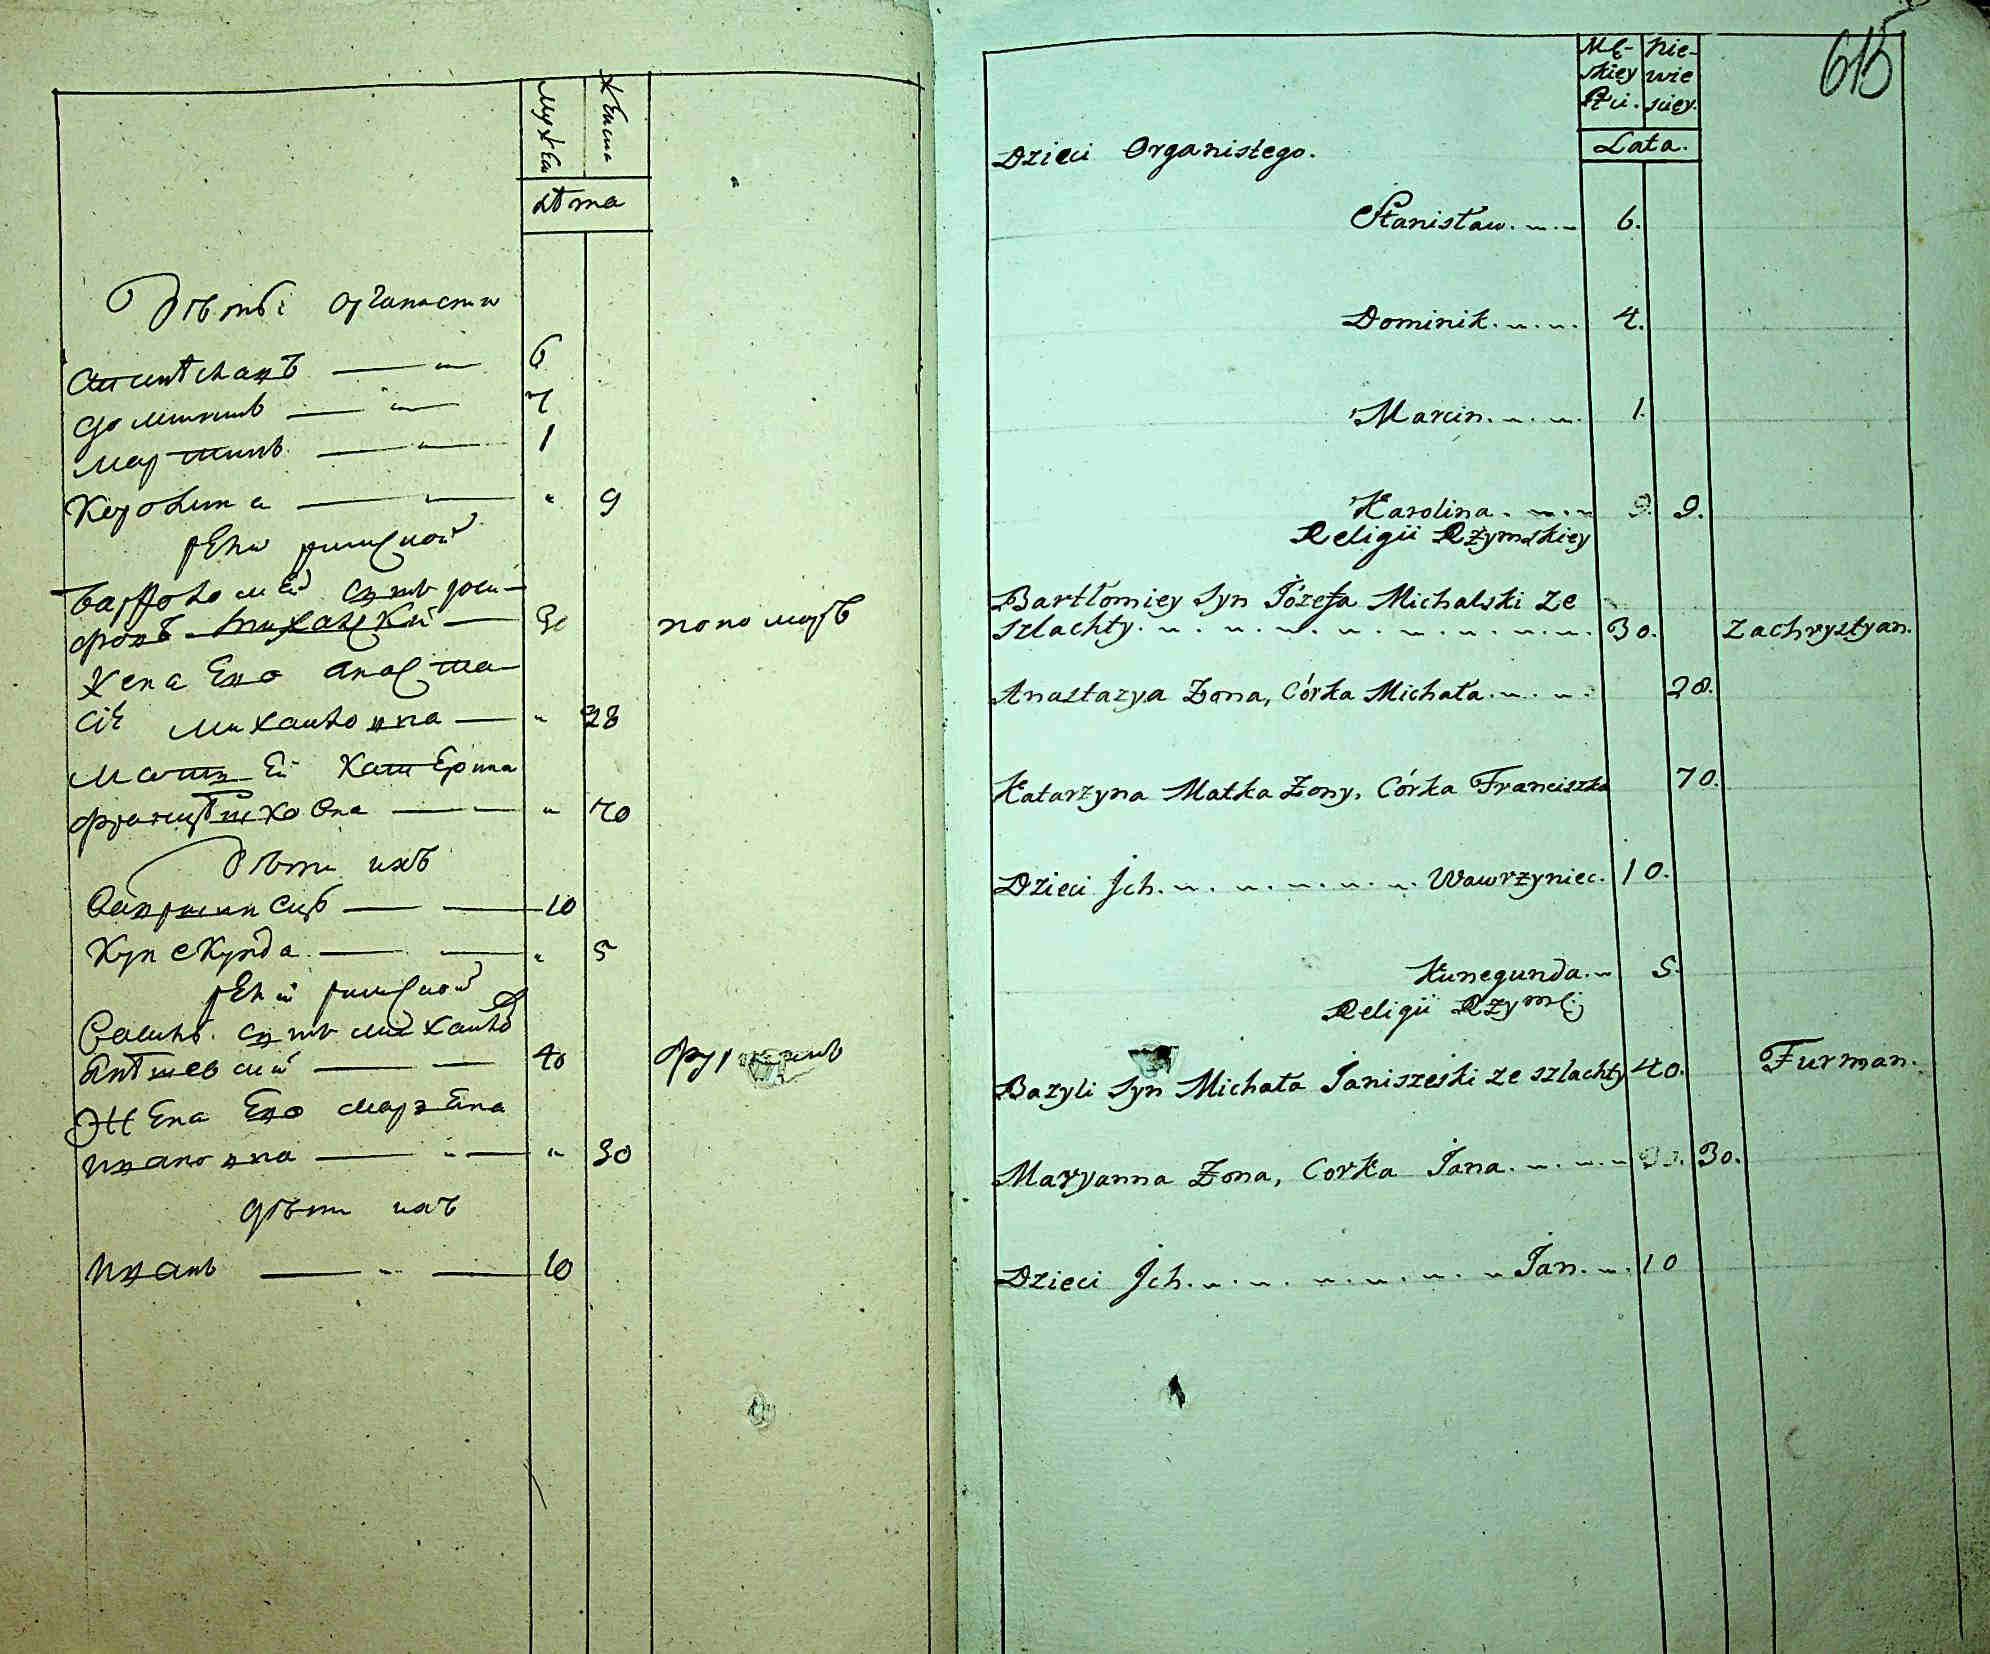 мужеск женска
лѣта
Дѣти органисти
Станиславъ — „ — 6
Доминикъ — „ — 4
Мартинъ — „ — 1
Каролина — „ — „ 9
рели римской
Варфоломей сынъ Іози-
фовъ Михалский — 30 пономаръ
Жена Его Анаста-
сія Михайловна — „ 28
Матъ Ей Катерина
Францѣшковна — „ 70
Дѣти ихъ
Вавринецъ — — 10
Кунекунда — — „ 5
рели римской
Василь сынъ Михайлѡ
Янѣшевский — — 40 фурманъ
Жена Его Маръяна
Ивановна — „ — „ 30
дѣти ихъ
Иванъ — „ — 10
615
Mę- Nie-
skiey wie
Płci. sciey.
Lata.
Dzieci Organistego.
Stanisław. „ . „ 6.
Dominik. „ . „ . 4.
Marcin. „ . „ . 1.
Karolina. „ . „ 9. 9.
Religii Rzymskiey
Bartłomiey Syn Józefa Michalski ze
szlachty. „ . „ . „ . „ . „ . „ . „ . 30. Zachrystyan.
Anastazya Żona, Córka Michała. „ . „ . 28.
Katarzyna Matka Żony, Córka Franciszka 70.
Dzieci Jch. „ . „ . „ . „ . „ . Wawrzyniec. 10.
Kunegunda. „ 5.
Religii Rzymij
Bazyli Syn Michała Janiszeski ze szlachty 40. Furman.
Maryanna Żona, Corka Jana. „ . „ . „ 30. 30.
Dzieci Jch. „ . „ . „ . „ . „ . „ Jan. „ . 10